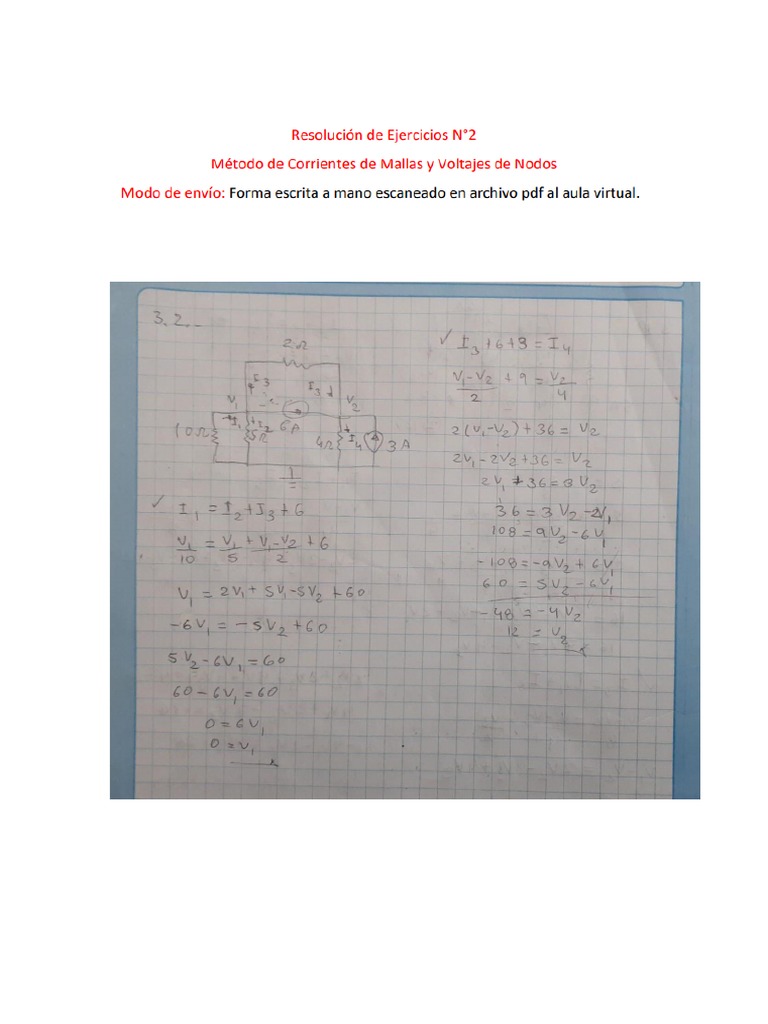 Resolución de Ejercicios N°2
Método de Corrientes de Mallas y Voltajes de Nodos
Modo de envío: Forma escrita a mano escaneado en archivo pdf al aula virtual.
3.2.-
2Ω
I3 I3
V1 V2
10Ω I1 I2 5Ω 6A 4Ω I4 3A
✓ I1 = I2 + I3 + 6
V1/10 = V1/5 + V1-V2/2 + 6
V1 = 2V1 + 5V1 - 5V2 + 60
-6V1 = -5V2 + 60
5V2 - 6V1 = 60
60 - 6V1 = 60
0 = 6V1
0 = V1
✓ I3 + 6 + 3 = I4
V1-V2/2 + 9 = V2/4
2(V1-V2) + 36 = V2
2V1 - 2V2 + 36 = V2
2V1 + 36 = 3V2
36 = 3V2 - 2V1
108 = 9V2 - 6V1
-108 = -9V2 + 6V1
60 = 5V2 - 6V1
-48 = -4V2
12 = V2